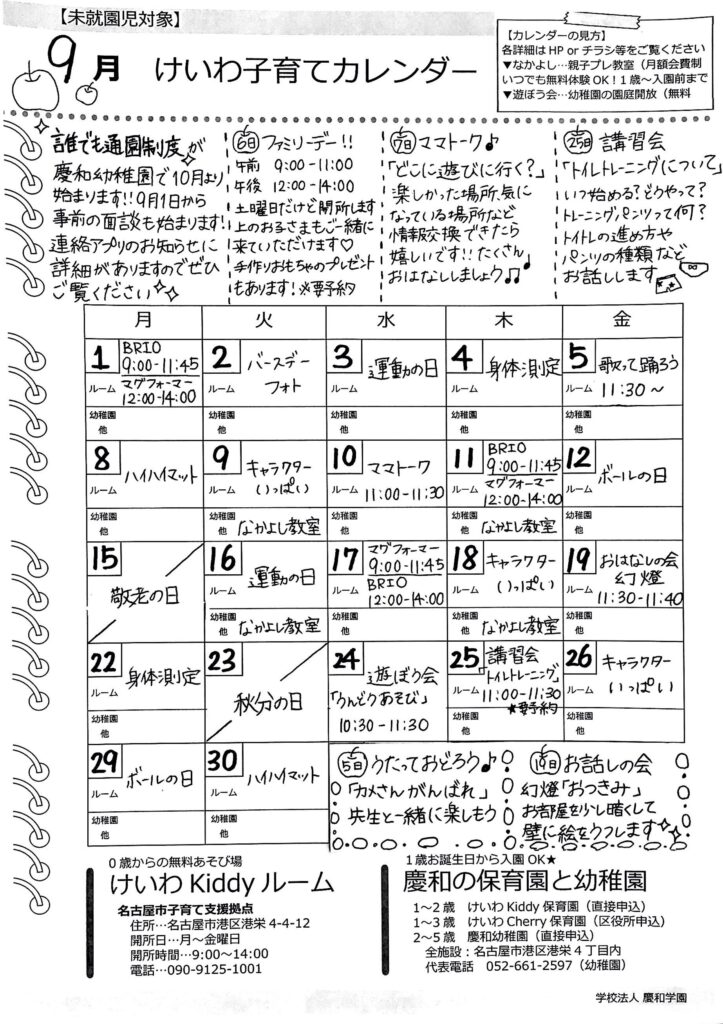 【未就園児対象】
9月 けいわ子育てカレンダー
【カレンダーの見方】
各詳細はHP or チラシ等をご覧ください
▼なかよし…親子プレ教室（月額会費制
いつでも無料体験OK！1歳～入園前まで
▼遊ぼう会…幼稚園の園庭開放（無料
誰でも通園制度が
慶和幼稚園で10月より
始まります!!9月1日から
事前の面談も始まります!
連絡アプリのお知らせに
詳細がありますのでぜひ
ご覧ください
6日 ファミリーデー!!
午前 9:00-11:00
午後 12:00-14:00
土曜日だけど開所します
上のお子さまもご一緒に
来ていただけます♡
手作りおもちゃのプレゼント
もあります!※要予約
9日 ママトーク♪
「どこに遊びに行く?」
楽しかった場所、気に
なっている場所など
情報交換できたら
嬉しいです!!たくさん
おはなししましょう♫♪
25日 講習会
「トイレトレーニングについて」
いつ始める?どうやって?
トレーニングパンツって何?
トイトレの進め方や
パンツの種類など
お話しします
月 火 水 木 金
1 BRIO
9:00-11:45
ルーム マグフォーマー
12:00-14:00
幼稚園
他
2 バースデー
ルーム フォト
幼稚園
他
3 運動の日
ルーム
幼稚園
他
4 身体測定
ルーム
幼稚園
他
5 歌って踊ろう
ルーム 11:30～
幼稚園
他
8 ハイハイマット
ルーム
幼稚園
他
9 キャラクター
ルーム いっぱい
幼稚園
他 なかよし教室
10 ママトーク
ルーム 11:00-11:30
幼稚園
他
11 BRIO
9:00-11:45
ルーム マグフォーマー
12:00-14:00
幼稚園
他 なかよし教室
12 ボールの日
ルーム
幼稚園
他
15
敬老の日
16 運動の日
ルーム
幼稚園
他 なかよし教室
17 マグフォーマー
9:00-11:45
ルーム BRIO
12:00-14:00
幼稚園
他
18 キャラクター
ルーム いっぱい
幼稚園
他 なかよし教室
19 おはなしの会
幻燈
ルーム 11:30-11:40
幼稚園
他
22 身体測定
ルーム
幼稚園
他
23
秋分の日
24 遊ぼう会
ルーム 「うんどうあそび」
幼稚園 10:30-11:30
他
25 講習会
「トイレトレーニング」
ルーム 11:00-11:30
★要予約
幼稚園
他
26 キャラクター
ルーム いっぱい
幼稚園
他
29 ボールの日
ルーム
幼稚園
他
30 ハイハイマット
ルーム
幼稚園
他
5日 うたっておどろう♪
「カメさんがんばれ」
先生と一緒に楽しもう
19日 お話しの会
幻燈「おつきみ」
お部屋を少し暗くして
壁に絵をウフします
0歳からの無料あそび場
けいわ Kiddy ルーム
名古屋市子育て支援拠点
住所…名古屋市港区港栄 4-4-12
開所日…月～金曜日
開所時間…9:00～14:00
電話…090-9125-1001
1歳お誕生日から入園OK★
慶和の保育園と幼稚園
1～2歳 けいわ Kiddy 保育園（直接申込）
1～3歳 けいわ Cherry 保育園（区役所申込）
2～5歳 慶和幼稚園（直接申込）
全施設：名古屋市港区港栄4丁目内
代表電話 052-661-2597（幼稚園）
学校法人 慶和学園